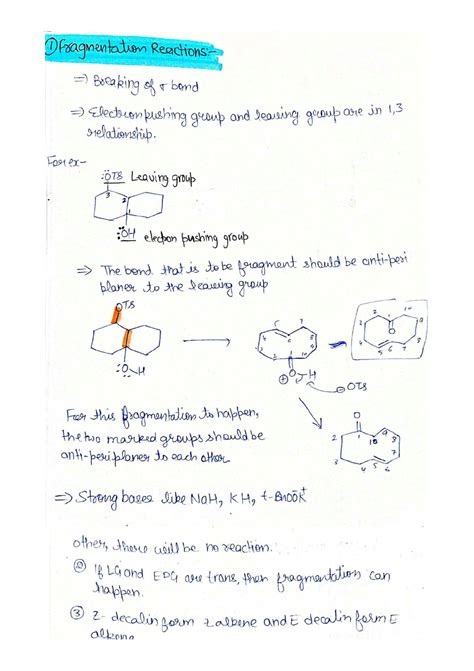 ① Fragmentation Reactions:-
⇒ Breaking of σ bond
⇒ Electron pushing group and leaving group are in 1,3
relationship.
For ex-
:OTS Leaving group
3
2
1
:OH electron pushing group
⇒ The bond that is to be fragment should be anti-peri
planer to the leaving group
OTS
:O-H
O-H
⊕
⊖OTS
For this fragmentation to happen,
the two marked groups should be
anti-periplaner to each other
⇒ Strong bases like NaH, KH,
other, there will be no reaction.
② If LG and EDG are trans, then fragmentation can
happen.
③ Z- decalin form z alkene and E decalin form E